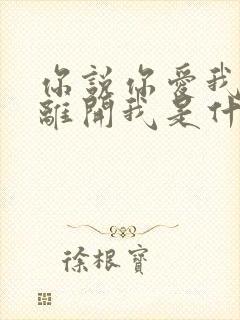 你說你愛我
離開我是什
徐根寶